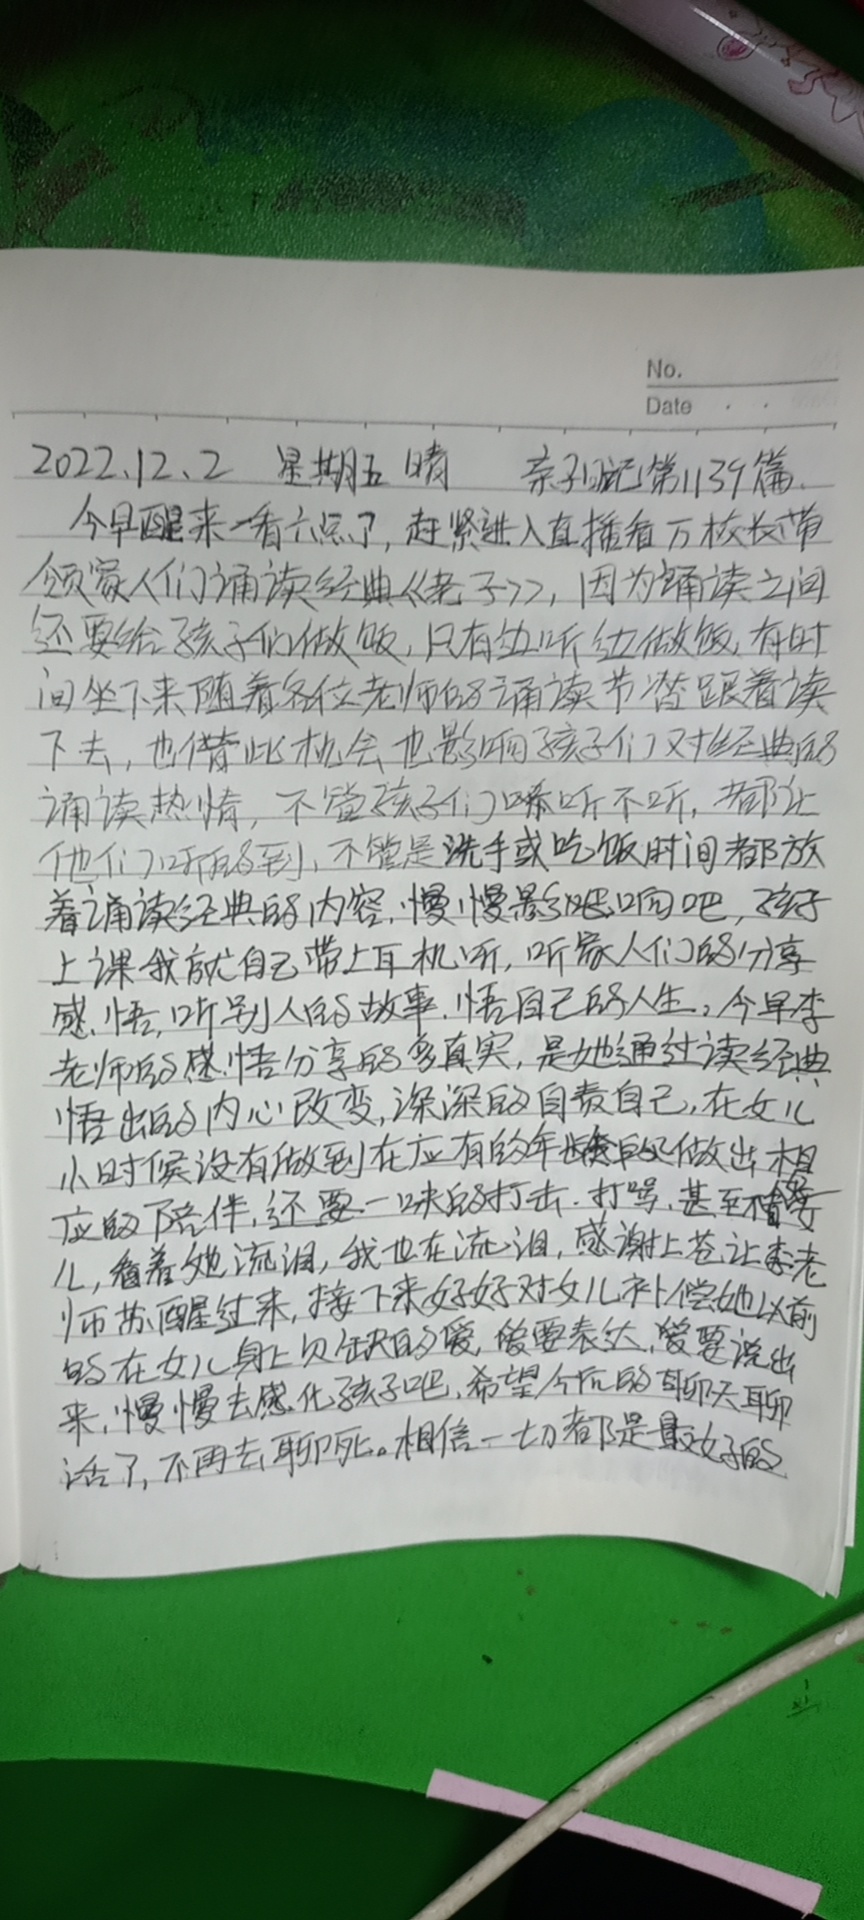 No.
Date
2022.12.2 星期五 晴 亲子日记第1139篇.
今早醒来一看六点了,赶紧进入直播看万校长带
领家人们诵读经典《老子》,因为诵读之间
还要给孩子们做饭,只有边听边做饭,有时
间坐下来随着各位老师的诵读节奏跟着读
下去,也借此机会也影响孩子们对经典的
诵读热情,不管孩子们听不听,都让
他们听的到,不管是洗手或吃饭时间都放
着诵读经典的内容,慢慢影响吧,孩子
上课我就自己带上耳机听,听家人们的分享
感悟,听别人的故事,悟自己的人生。今早李
老师的感悟分享的多真实,是她通过读经典
悟出的内心改变,深深的自责自己,在女儿
小时候没有做到在应有的年做出相
应的陪伴,还要一味的打击.打骂,甚至不管女
儿,看着她流泪,我也在流泪,感谢上苍让李老
师苏醒过来,接下来好好对女儿补偿她以前
的在女儿身上欠缺的爱,爱要表达,爱要说出
来,慢慢去感化孩子吧,希望今后的聊天聊
活了,不再去聊死。相信一切都是最好的